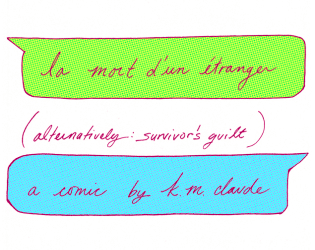 la mort d'un étranger
(alternatively: survivor's guilt)
a comic by k.m. claude